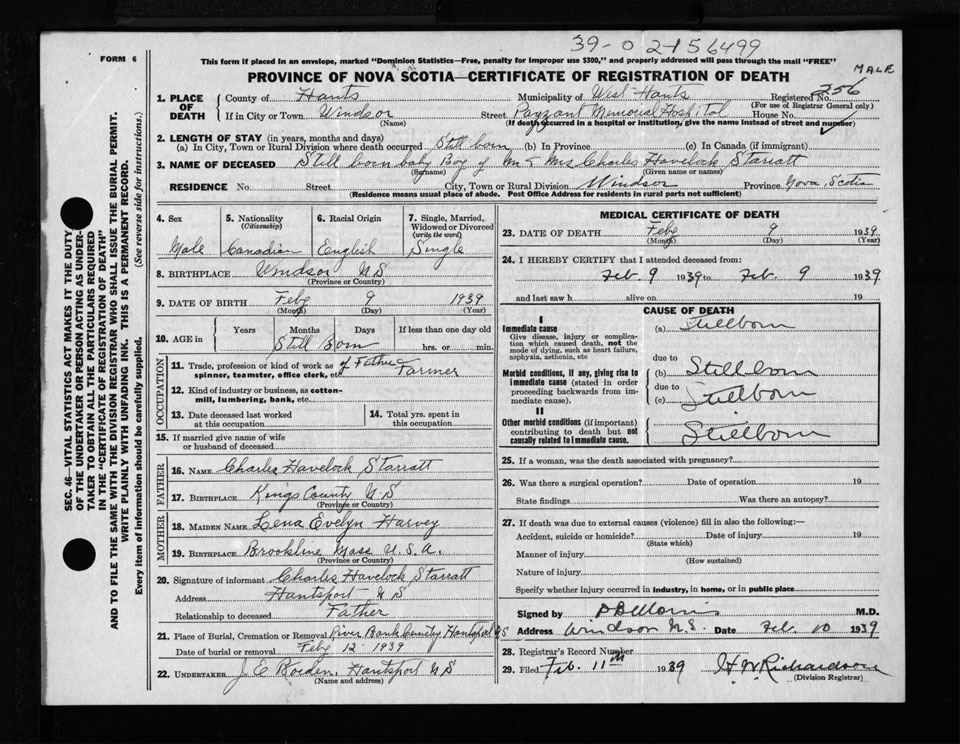 39-0 2-156499
FORM 6
This form if placed in an envelope, marked "Dominion Statistics—Free, penalty for improper use $300," and properly addressed will pass through the mail "FREE"
PROVINCE OF NOVA SCOTIA—CERTIFICATE OF REGISTRATION OF DEATH
MALE
1. PLACE OF DEATH
County of Hants Municipality of West Hants Registered No. 256
(For use of Registrar General only)
If in City or Town Windsor Street Payzant Memorial Hospital House No.
(Name) (If death occurred in a hospital or institution, give the name instead of street and number)
2. LENGTH OF STAY (in years, months and days)
(a) In City, Town or Rural Division where death occurred Still born (b) In Province (c) In Canada (if immigrant)
3. NAME OF DECEASED Still born baby Boy of Mr & Mrs Charles Havelock Starratt
(Surname) (Given name or names)
RESIDENCE No. Street City, Town or Rural Division Windsor Province Nova Scotia
(Residence means usual place of abode. Post Office Address for residents in rural parts not sufficient)
4. Sex
Male
5. Nationality
(Citizenship)
Canadian
6. Racial Origin
English
7. Single, Married, Widowed or Divorced
(write the word)
Single
8. BIRTHPLACE Windsor NS
(Province or Country)
9. DATE OF BIRTH Feby 9 1939
(Month) (Day) (Year)
10. AGE in
Years Months Days If less than one day old
Still Born hrs. or min.
OCCUPATION
11. Trade, profession or kind of work as of Father Farmer
spinner, teamster, office clerk, etc.
12. Kind of industry or business, as cotton-
mill, lumbering, bank, etc.
13. Date deceased last worked
at this occupation
14. Total yrs. spent in
this occupation
15. If married give name of wife
or husband of deceased
FATHER
16. NAME Charles Havelock Starratt
17. BIRTHPLACE Kings County N.S
(Province or Country)
MOTHER
18. MAIDEN NAME Lena Evelyn Harvey
19. BIRTHPLACE Brookline Mass U.S.A.
(Province or Country)
20. Signature of informant Charles Havelock Starratt
Address Hantsport NS
Relationship to deceased Father
21. Place of Burial, Cremation or Removal River Bank Cemetry Hantsport NS
Date of burial or removal Feby 12 1939
22. UNDERTAKER J. E. Borden, Hantsport NS
(Name and address)
MEDICAL CERTIFICATE OF DEATH
23. DATE OF DEATH Feby 9 1939
(Month) (Day) (Year)
24. I HEREBY CERTIFY that I attended deceased from:
Feb 9 1939 to Feb. 9 1939
and last saw h alive on 19
CAUSE OF DEATH
I
Immediate cause
Give disease, injury or complica-
tion which caused death, not the
mode of dying, such as heart failure,
asphyxia, asthenia, etc
(a) Stillborn
due to
Morbid conditions, if any, giving rise to
immediate cause (stated in order
proceeding backwards from im-
mediate cause).
(b) Stillborn
due to
(c) Stillborn
II
Other morbid conditions (if important)
contributing to death but not
causally related to immediate cause.
Stillborn
25. If a woman, was the death associated with pregnancy?
26. Was there a surgical operation? Date of operation 19
State findings Was there an autopsy?
27. If death was due to external causes (violence) fill in also the following:—
Accident, suicide or homicide? Date of injury 19
(State which)
Manner of injury
(How sustained)
Nature of injury
Specify whether injury occurred in industry, in home, or in public place
Signed by Morris M.D.
Address Windsor N.S. Date Feb. 10 1939
28. Registrar's Record Number
29. Filed Feb. 11th 1939 H W Richardson
(Division Registrar)
SEC. 46—VITAL STATISTICS ACT MAKES IT THE DUTY
OF THE UNDERTAKER OR PERSON ACTING AS UNDER-
TAKER TO OBTAIN ALL THE PARTICULARS REQUIRED
IN THE "CERTIFICATE OF REGISTRATION OF DEATH"
AND TO FILE THE SAME WITH THE DIVISION REGISTRAR WHO SHALL ISSUE THE BURIAL PERMIT.
WRITE PLAINLY WITH UNFADING INK. THIS IS A PERMANENT RECORD.
Every item of information should be carefully supplied. (See reverse side for instructions.)